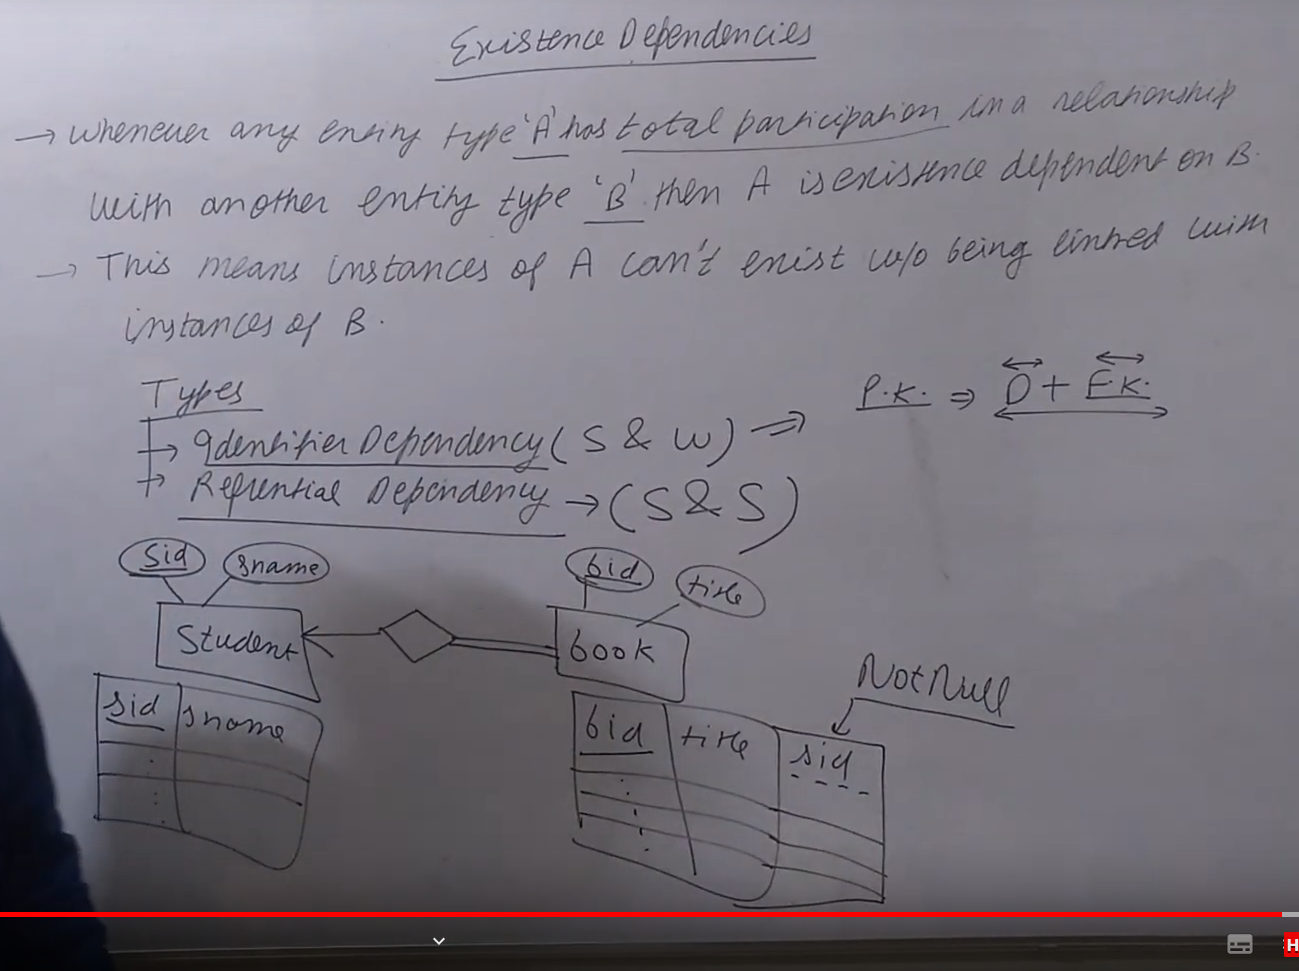 Existence Dependencies
→ whenever any entity type 'A' has total participation in a relationship
with another entity type 'B' then A is existence dependent on B.
→ This means instances of A can't exist w/o being linked with
instances of B.
Types
→ Identifier Dependency (S & W) ⇒ P.K. ⇒ D + F.K.
→ Refrential Dependency → (S & S)
Sid sname bid title
Student book
NotNull
sid sname bid title sid
H